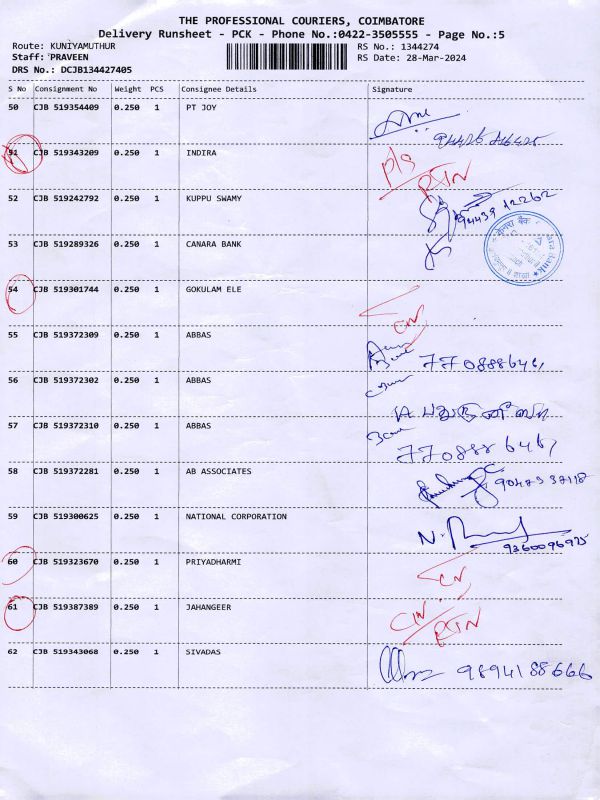 THE PROFESSIONAL COURIERS, COIMBATORE
Delivery Runsheet - PCK - Phone No.:0422-3505555 - Page No.:5
Route: KUNIYAMUTHUR RS No.: 1344274
Staff: PRAVEEN RS Date: 28-Mar-2024
DRS No.: DCJB134427405
S No Consignment No Weight PCS Consignee Details Signature
50 CJB 519354409 0.250 1 PT JOY
51 CJB 519343209 0.250 1 INDIRA
RTN
52 CJB 519242792 0.250 1 KUPPU SWAMY
94439 12262
53 CJB 519289326 0.250 1 CANARA BANK
54 CJB 519301744 0.250 1 GOKULAM ELE
CN
55 CJB 519372309 0.250 1 ABBAS
7708886461
56 CJB 519372302 0.250 1 ABBAS
57 CJB 519372310 0.250 1 ABBAS
7708886461
58 CJB 519372281 0.250 1 AB ASSOCIATES
59 CJB 519300625 0.250 1 NATIONAL CORPORATION
9360096925
60 CJB 519323670 0.250 1 PRIYADHARMI
CN
61 CJB 519387389 0.250 1 JAHANGEER
CN
RTN
62 CJB 519343068 0.250 1 SIVADAS
9894188666